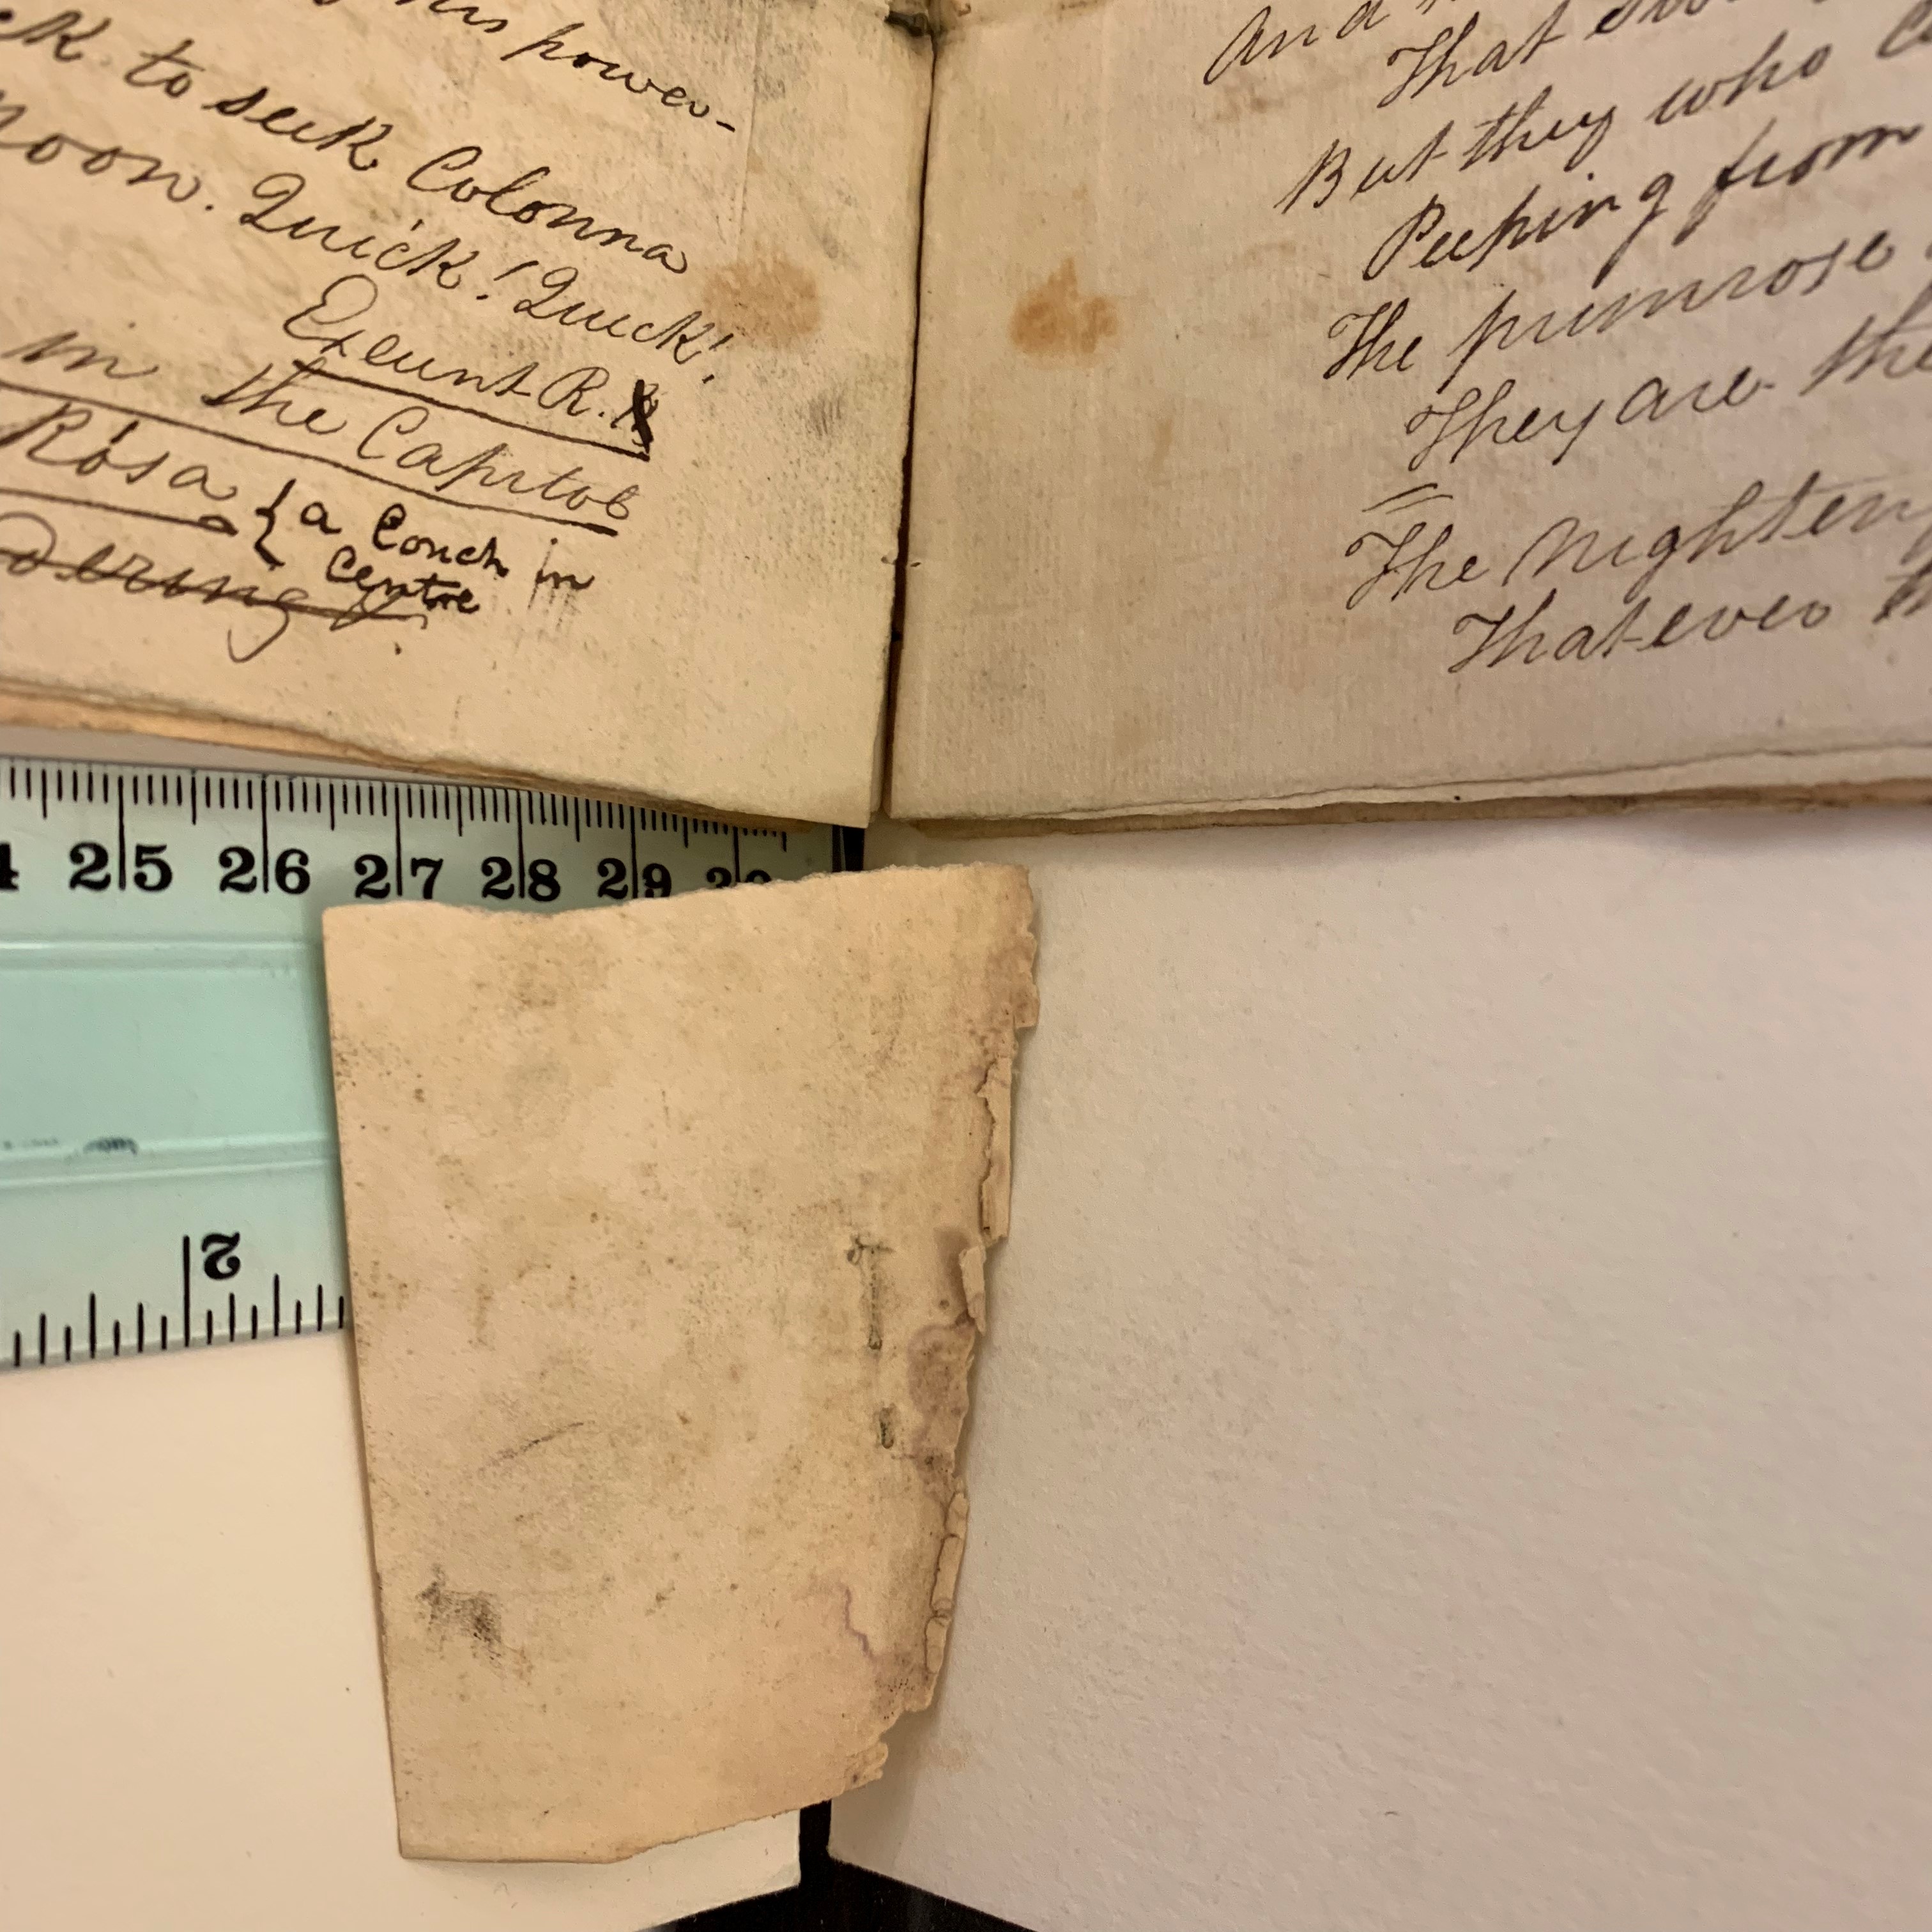 his power-
to seek Colonna
noon. Quick! Quick!
Exeunt R.
in the Capitol
Rosa { a Couch in
Centre
And
That
But they who
Peeping from
The primrose
They are the
The Nighten
That ever
25 26 27 28 29
2